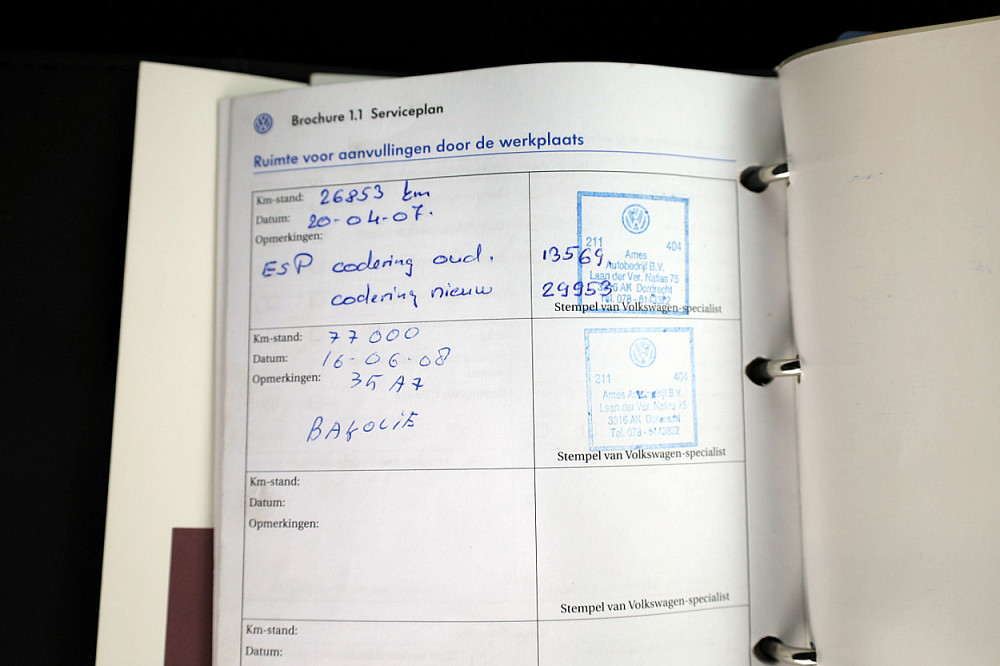 Brochure 1.1 Serviceplan
Ruimte voor aanvullingen door de werkplaats
Km-stand: 26853 km
Datum: 20-04-07.
Opmerkingen:
ESP codering oud. 13569.
codering nieuw 29953
211 404
Ames
Autobedrijf B.V.
Laan der Ver. Naties 75
3316 AK Dordrecht
Tel. 078 - 6143822
Stempel van Volkswagen-specialist
Km-stand: 77000
Datum: 16-06-08
Opmerkingen: 35 A7
BAKOLIE
211 404
Ames Autobedrijf B.V.
Laan der Ver. Naties 75
3316 AK Dordrecht
Tel. 078 - 6143822
Stempel van Volkswagen-specialist
Km-stand:
Datum:
Opmerkingen:
Stempel van Volkswagen-specialist
Km-stand:
Datum: